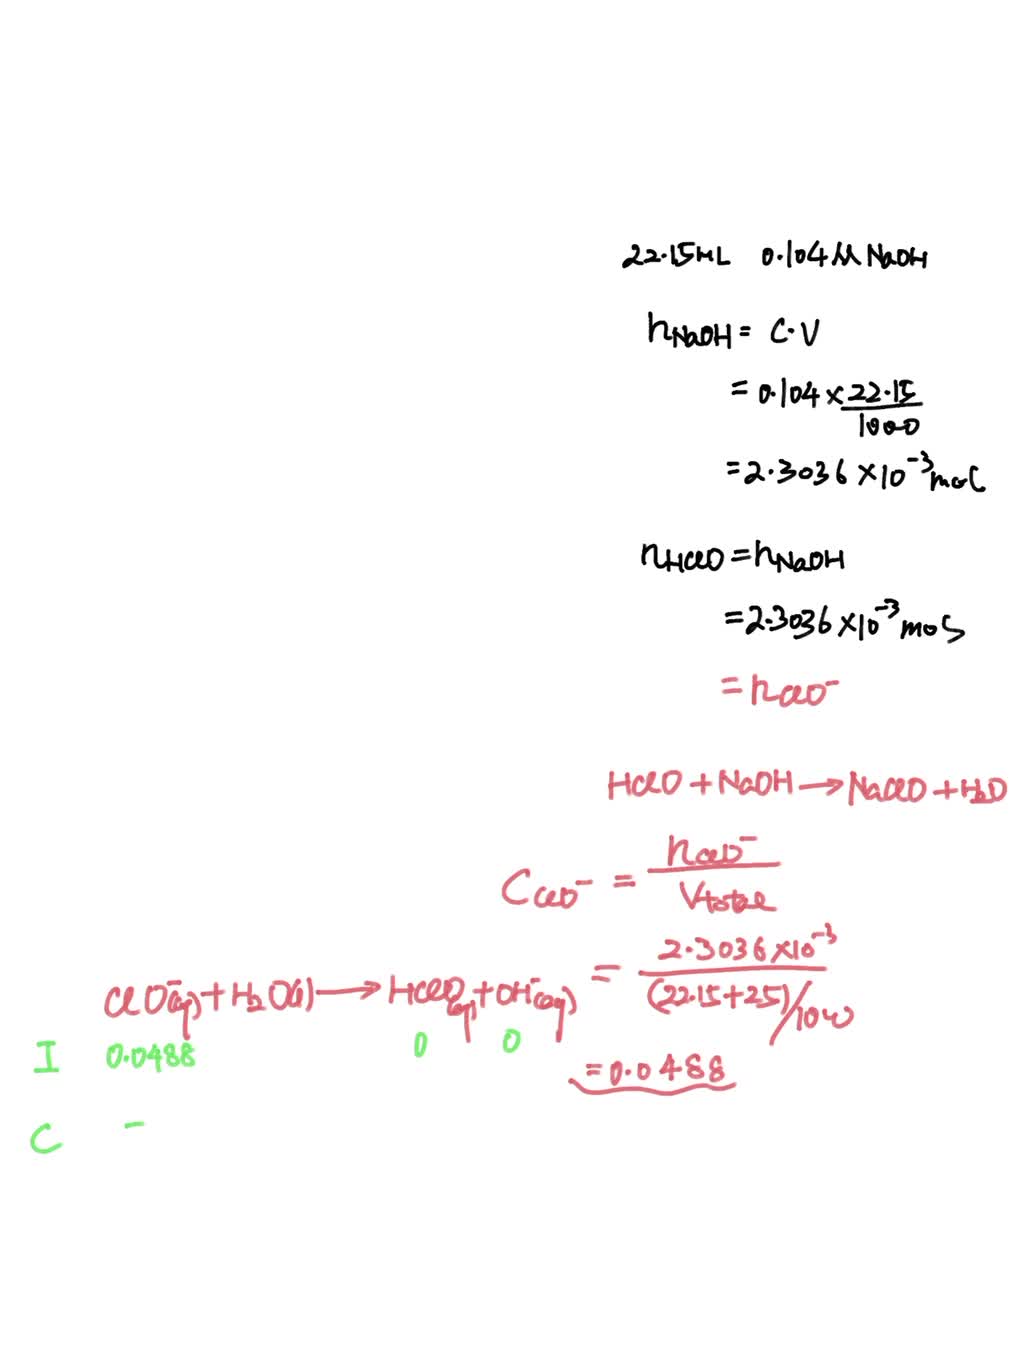 22.15mL 0.104M NaOH
nNaOH = C·V
= 0.104 × 22.15/1000
= 2.3036 × 10⁻³ mol
nHClO = nNaOH
= 2.3036 × 10⁻³ mol
= nClO⁻
HClO + NaOH → NaClO + H₂O
CClO⁻ = nClO⁻/Vtotal
= 2.3036 × 10⁻³/(22.15+25)/1000
= 0.0488
ClO⁻(aq) + H₂O(l) → HClO(aq) + OH⁻(aq)
I 0.0488 0 0
C -